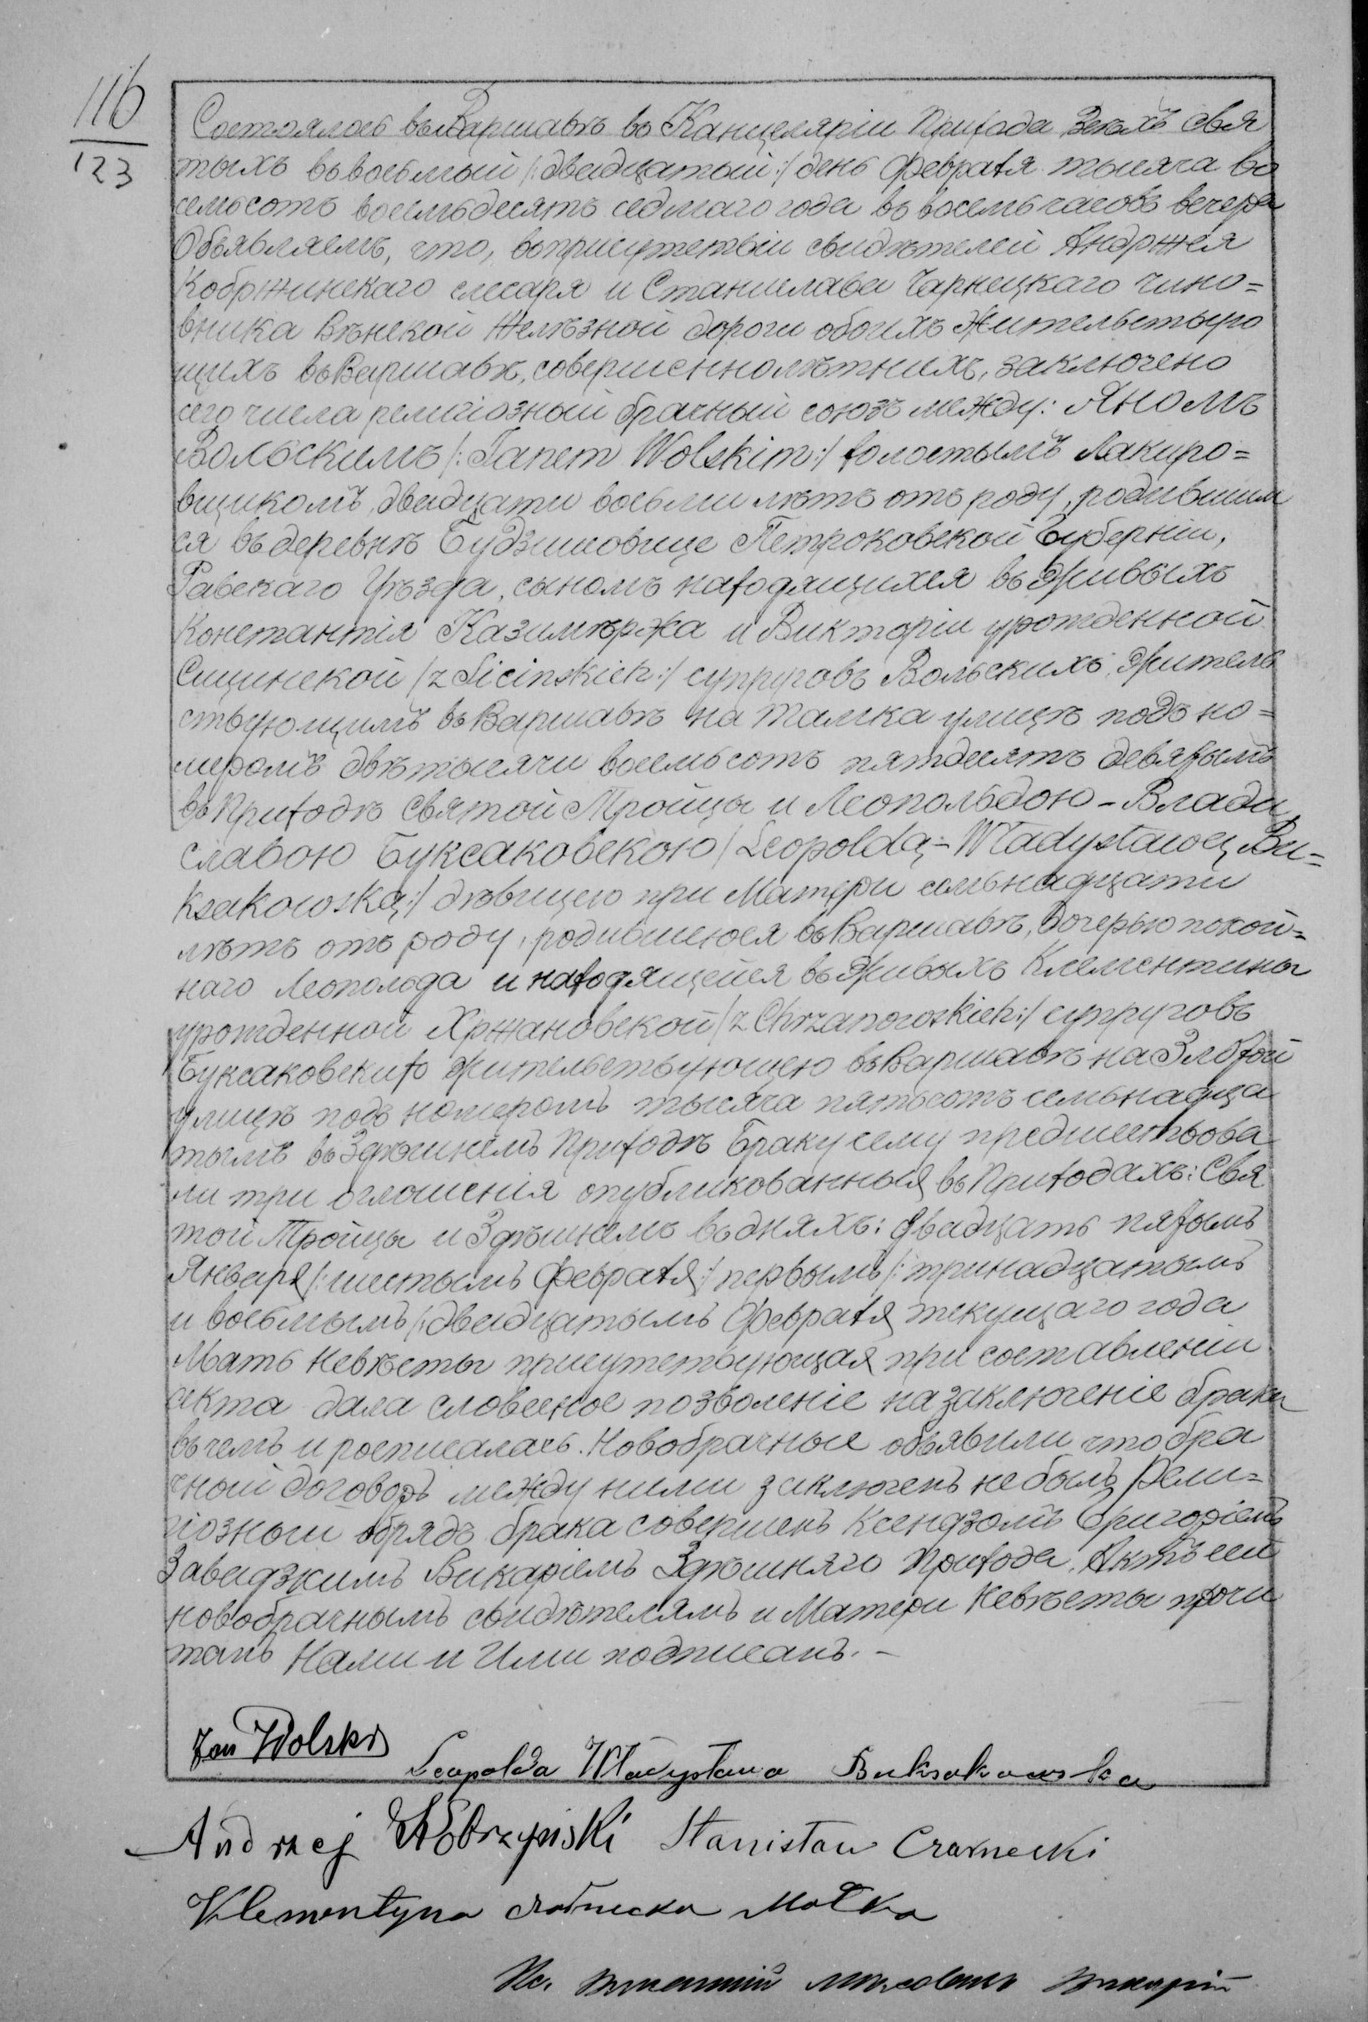 116
123
Состоялось въ Варшавѣ въ Канцеляріи Прихода Всѣхъ Свя
тыхъ въ восьмый /:двадцатый:/ день Февраля тысяча во
семьсотъ восемьдесятъ седмаго года въ восемь часовъ вечера
Объявляемъ, что, въ присутствіи свидѣтелей Андржея
Кобржинскаго слесаря и Станислава Чарнецкаго чино=
вника Вѣнской Желѣзной дороги обоихъ жительствую
щихъ въ Варшавѣ, совершеннолѣтнихъ, заключено
сего числа религіозный брачный союзъ между: Яномъ
Вольскимъ /:Janem Wolskim:/ холостымъ Лакиро=
вщикомъ, двадцати восьми лѣтъ отъ роду, родившим
ся въ деревнѣ Будзишовице Петроковской Губерніи,
Равскаго Уѣзда, сыномъ находящихся въ живыхъ
Константія Казимѣржа и Викторіи урожденной
Сицинской /z Sicinskich:/ супруговъ Вольскихъ, житель
ствующимъ въ Варшавѣ на Тамка улицѣ подъ но=
меромъ двѣ тысячи восемьсотъ пятдесятъ девятымъ
въ Приходѣ Святой Тройцы и Леопольдою-Влади
славою Буксаковскою /Leopoldą-Władysławą Bu=
ksakowską:/ дѣвицею при Матери семьнадцати
лѣтъ отъ роду, родившеюся въ Варшавѣ, дочерью покой=
наго Леополода и находящейся въ живыхъ Клементины
урожденной Хржановской /z Chrzanowskich:/ супруговъ
Буксаковскихъ жительствующею въ Варшавѣ на Злотой
улицѣ подъ номеромъ тысяча пятьсотъ семьнадца
тымъ въ Здѣшнемъ Приходѣ Браку сему предшествова
ли три оглошенія опубликованныя въ Приходахъ: Свя
той Тройцы и Здѣшнемъ въ дняхъ: двадцать пятымъ
Января /:шестымъ Февраля:/ первымъ /:тринадцатымъ
и восьмымъ /:двадцатымъ Февраля текущаго года
Мать Невѣсты присутствующая при составленіи
акта дала словесное позволеніе на заключеніе брака
въ чемъ и росписалась. Новобрачные объявили что бра
чный договоръ между ними заключенъ не былъ Рели=
гіозный обрядъ брака совершенъ Ксендзомъ Григоріемъ
Завадзкимъ Викаріемъ Здѣшняго Прихода. Актъ сей
новобрачнымъ свидѣтелямъ и Матери Невѣсты прочи
танъ Нами и Ими подписанъ. —
Jan Wolski
Leopolda Władysława Buksakowska
Andrzej Kobrzyński Stanisław Czarnecki
Klementyna Matka
Кс.